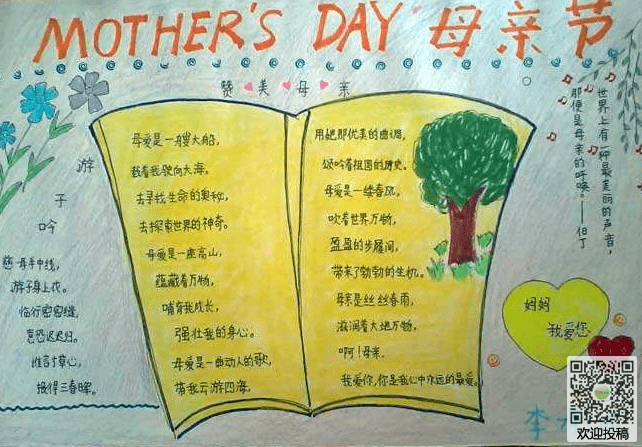 MOTHER'S DAY 母亲节
赞美母亲
游子吟
慈母手中线，
游子身上衣。
临行密密缝，
意恐迟迟归。
谁言寸草心，
报得三春晖。
母爱是一艘大船，
载着我驶向大海，
去寻找生命的奥秘，
去探索世界的神奇。
母爱是一座高山，
蕴藏着万物，
哺育我成长，
强壮我的身心。
母爱是一曲动人的歌，
带我云游四海，
用她那优美的曲调，
颂吟着祖国的历史。
母爱是一缕春风，
吹着世界万物，
盈盈的步履间，
带来了勃勃的生机。
母亲是丝丝春雨，
滋润着大地万物，
啊！母亲，
我爱你，你是我心中永远的最爱。
世界上有一种最美丽的声音，
那便是母亲的呼唤。——但丁
妈妈
我爱您
李
欢迎投稿